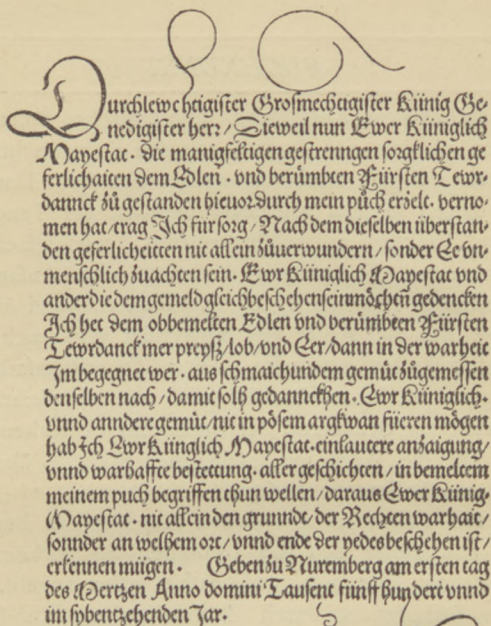 Durchlewchtigister Grosmechtigister Künig Ge-
nedigister herr / Dieweil nun Ewer Küniglich
Mayestat. die manigfeltigen gestrenngen sorgklichen ge
ferlichaiten dem Edlen. vnd berümbten Fürsten Tewr-
dannck zů gestanden hieuor durch mein půch erzelt. verno-
men hat / trag Ich für sorg / Nach dem dieselben überstan-
den geferlicheitten nit allein zůuerwundern / sonder Ee vn-
menschlich zuachten sein. Ewr Küniglich Mayestat vnd
ander die dem gemeld gleich beschehen sein möchtñ gedencken
Ich het dem obbemelten Edlen vnd berümbten Fürsten
Tewrdanck mer preysz / lob / vnd Eer / dann in der warheit
Im begegnet wer. aus schmaichundem gemüt zůgemessen
denselben nach / damit solh gedannckhen. Ewr Küniglich.
vnnd anndere gemüt / nit in pösem argkwan füeren mögen
hab Ich Ewr Künglich Mayestat. ein lautere anzaigung /
vnnd warhaffte bestettung. aller geschichten / in bemeltem
meinem puch begriffen thun wellen / daraus Ewer Künig.
Mayestat. nit allein den grunndt / der Rechten warhait /
sonnder an welhem ort / vnnd ende der yedes beschehen ist /
erkennen mügen. Geben zu Nuremberg am ersten tag
des Mertzen Anno domini Tausent fünffhundert vnnd
im sybentzehenden Jar.